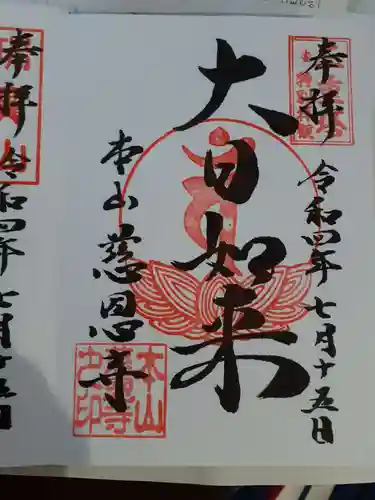 奉拝
令和四年七月十五日
大日如来
本山 慈恩寺
奉拝
令和四年七月十五日